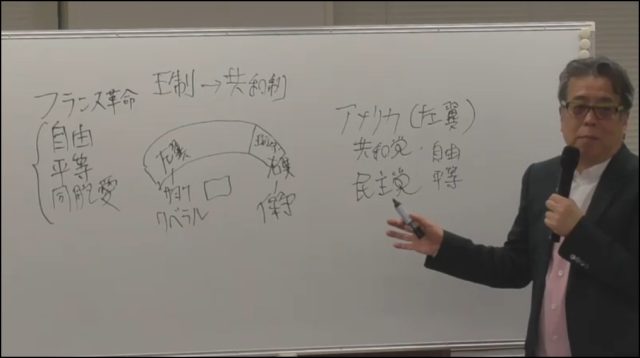 王制→共和制
フランス革命
自由
平等
同胞愛
左翼
右翼
サヨク
リベラル
保守
アメリカ(左翼)
共和党・自由
民主党 平等